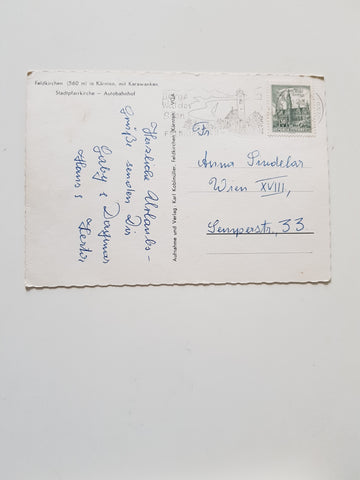 Feldkirchen (560 m) in Kärnten, mit Karawanken
Stadtpfarrkirche — Autobahnhof
Herzliche Urlaubs-
Grüße senden Dir
Gaby & Dagmar
Hans &
Aufnahme und Verlag: Karl Koblmüller, Feldkirchen, Kärnten
Fr.
Anna Sindelar
Wien XVIII,
Semperstr. 33